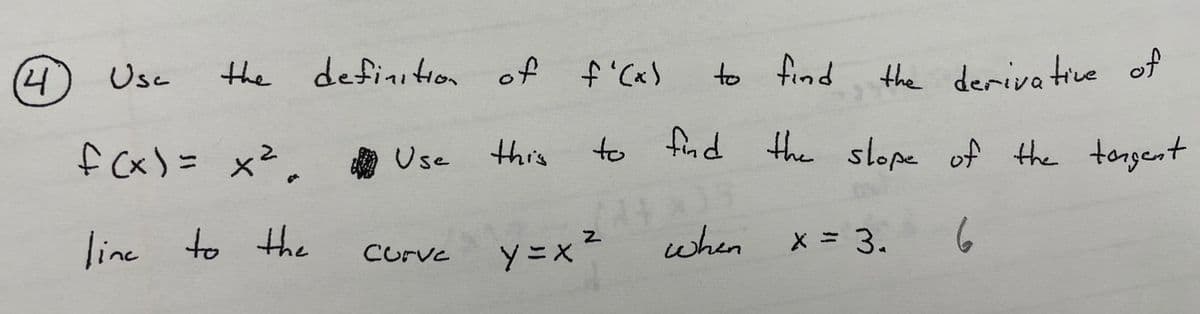 ④ Use the definition of f'(x) to find the derivative of
f(x) = x². Use this to find the slope of the tangent
line to the curve y=x² when x = 3. 6